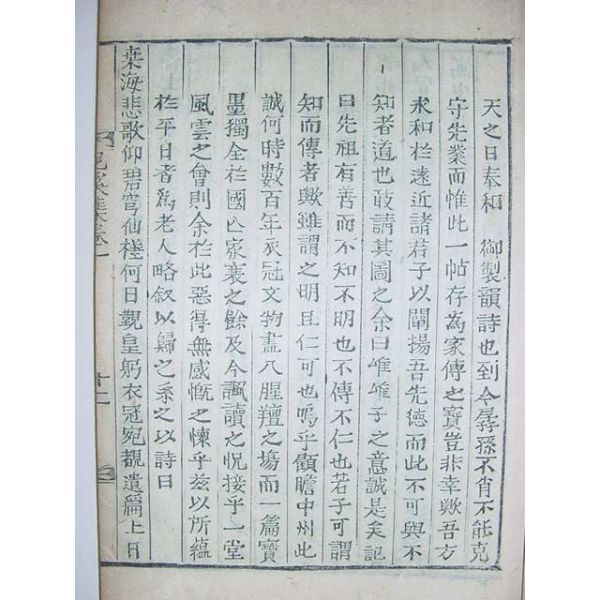 天之日奉和　御製韻詩也到今孱孫不肖不能克
守先業而惟此一帖存爲家傳之寶豈非幸歟吾方
求和於遠近諸君子以闡揚吾先德而此不可與不
知者道也敢請其圖之余曰唯唯子之意誠是矣記
曰先祖有善而不知不明也不傳不仁也若子可謂
知而傳者歟雖謂之明且仁可也嗚乎顧瞻中州此
誠何時數百年衣冠文物盡入腥羶之場而一篇寶
墨獨全於國亡家喪之餘及今諷讀之怳接乎一堂
風雲之會則余於此惡得無感慨之悚乎玆以所蘊
於平日者爲老人略叙以歸之系之以詩曰
桒海悲歌仰碧穹仙棧何日覲皇躬衣冠宛覩遺篇上日